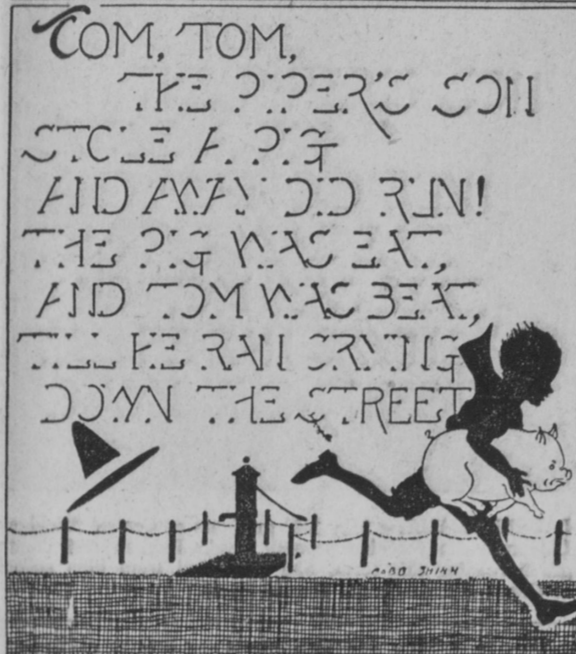 TOM, TOM,
THE PIPER'S SON
STOLE A PIG
AND AWAY DID RUN!
THE PIG WAS EAT,
AND TOM WAS BEAT,
TILL HE RAN CRYING
DOWN THE STREET
COBB SHINN